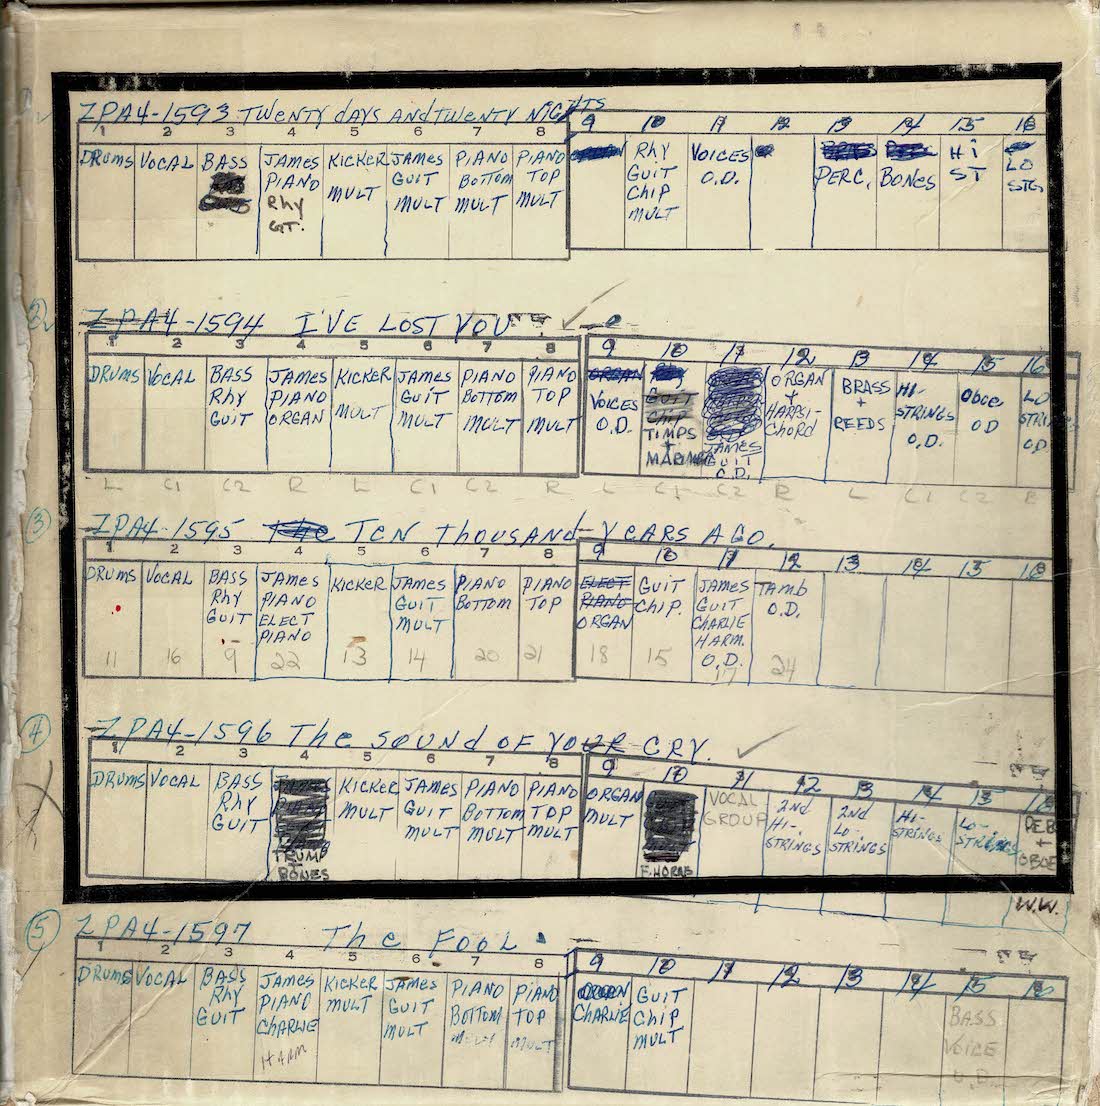 ZPA4-1593 TWENTY DAYS AND TWENTY NIGHTS
1 2 3 4 5 6 7 8 9 10 11 12 13 14 15 16
DRUMS VOCAL BASS JAMES KICKER JAMES PIANO PIANO RHY VOICES HI
PIANO MULT GUIT BOTTOM TOP GUIT O.D. PERC. BONES ST LO
RHY MULT MULT MULT CHIP STG
GT. MULT
2 ZPA4-1594 I'VE LOST YOU
1 2 3 4 5 6 7 8 9 10 11 12 13 14 15 16
DRUMS VOCAL BASS JAMES KICKER JAMES PIANO PIANO ORGAN ORGAN BRASS HI- OBOE LO
RHY PIANO MULT GUIT BOTTOM TOP VOICES GUIT + + STRINGS O.D STRINGS
GUIT ORGAN MULT MULT MULT O.D. CHIP HARPSI- REEDS O.D. O.D
TIMPS CHORD
+ JAMES
MARIMBA GUIT
O.D.
L C1 C2 R L C1 C2 R L C1 C2 R L C1 C2 R
3 ZPA4-1595 THE TEN THOUSAND YEARS AGO.
1 2 3 4 5 6 7 8 9 10 11 12 13 14 15 16
DRUMS VOCAL BASS JAMES KICKER JAMES PIANO PIANO ELECT GUIT JAMES TAMB
RHY PIANO GUIT BOTTOM TOP PIANO CHIP. GUIT O.D.
GUIT ELECT MULT ORGAN CHARLIE
PIANO HARM.
O.D.
11 16 9 22 13 14 20 21 18 15 17 24
4 ZPA4-1596 THE SOUND OF YOUR CRY.
1 2 3 4 5 6 7 8 9 10 11 12 13 14 15 16
DRUMS VOCAL BASS JAMES KICKER JAMES PIANO PIANO ORGAN VOCAL 2ND 2ND HI- LO-
RHY MULT GUIT BOTTOM TOP MULT GROUP HI- LO- STRINGS STRINGS
GUIT MULT MULT MULT STRINGS STRINGS +
TRUMP OBOE
+
BONES F. HORNS
W.W.
5 ZPA4-1597 THE FOOL
1 2 3 4 5 6 7 8 9 10 11 12 13 14 15 16
DRUMS VOCAL BASS JAMES KICKER JAMES PIANO PIANO ORGAN GUIT BASS
RHY PIANO MULT GUIT BOTTOM TOP CHARLIE CHIP VOICE
GUIT CHARLIE MULT MULT MULT MULT O.D.
HARM